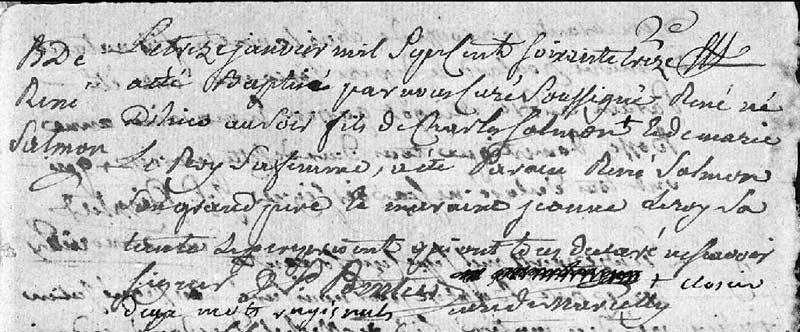 B De
René
Salmon
Le treize janvier mil sept cent soixante treize
a été Baptisé par nous Curé Soussigné René né
D'hier au soir fils de Charles Salmon et de marie
Le Roy sa femme, a été Parain René Salmon
son grand pere et maraine jeanne Leroy sa
tante qui ont déclaré ne scavoir
signer
deux mots rayés nuls